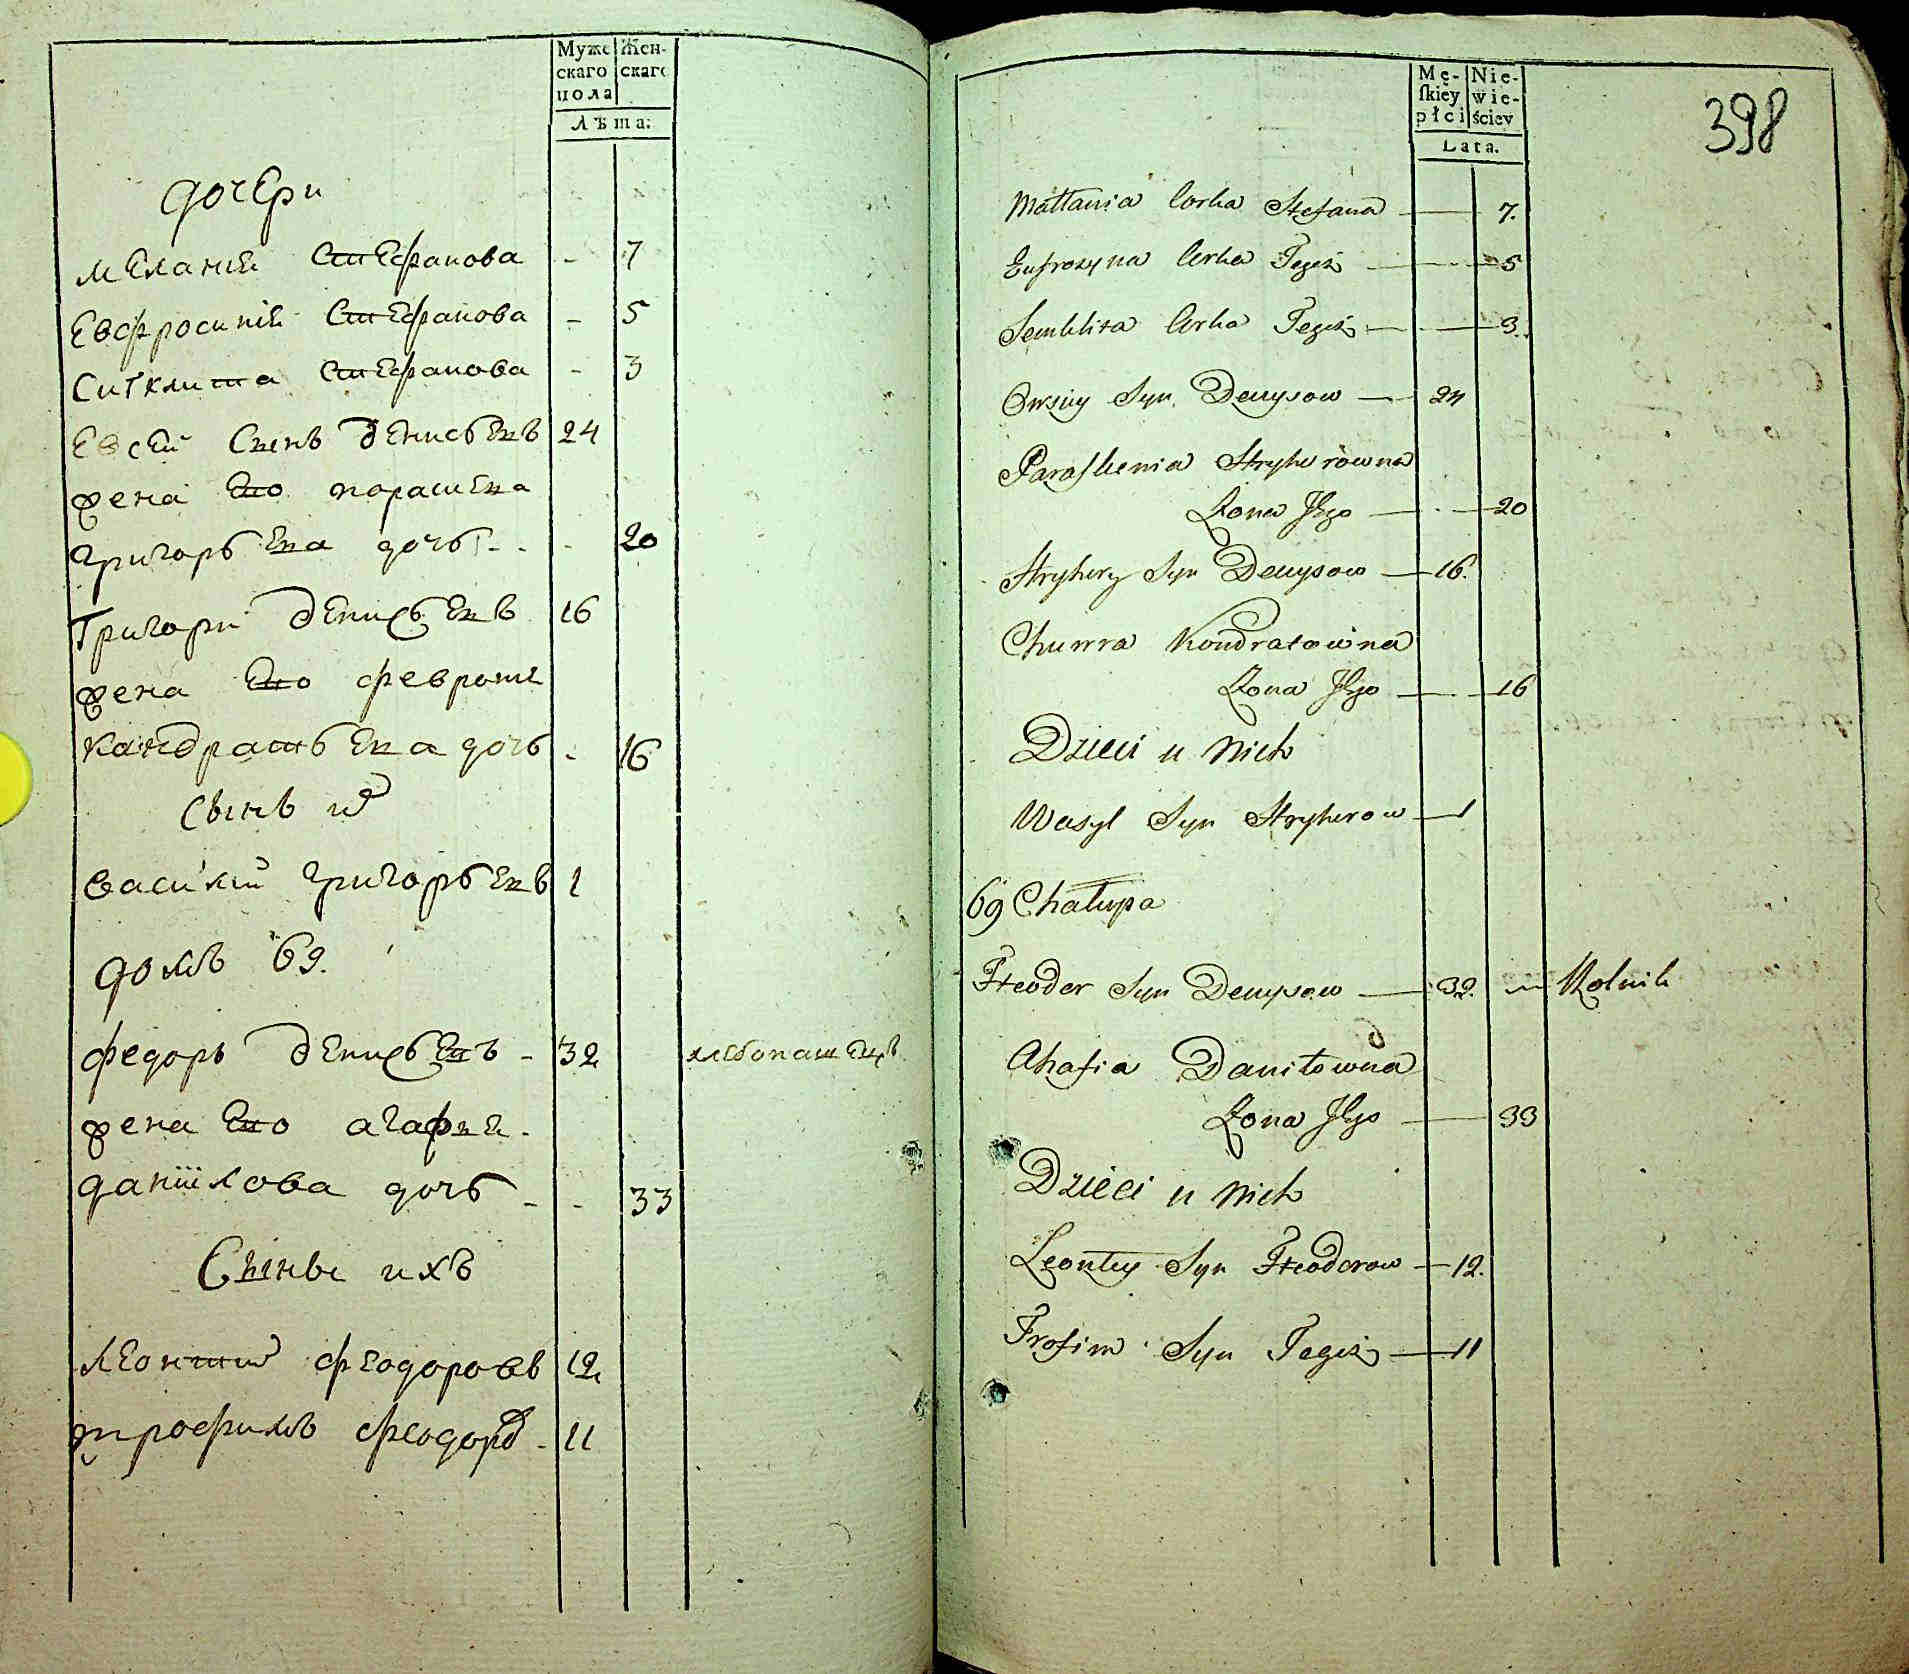 Муже Жен-
скаго скаго
пола
Лѣта:
дочери
мелания Стефанова - 7
Евфросиния Стефанова - 5
Ситклита Стефанова - 3
Евсей Сынъ денисьевъ 24
жена Его парасъева
григорьева дочь - - - 20
Григори денисьевъ 16
жена Его феврония
кандратьева дочь - 16
Сынъ их
василий григорьевъ 1
домъ 69.
федоръ денисьевъ - 32 хлебопашецъ
жена Его агафия
данилова дочь - - 33
Сыны ихъ
леонтий феодоровъ 12
трофимъ феодоров - 11
Mę- Nie-
ſkiey wie-
płci ściey
Lata.
398
Mallania Corka Stefana 7.
Eufrozyna Corka Tegoż 5
Semklita Corka Tegoż 3.
Owsiey Syn Denysow 24
Paraſkewia Hryhorowna
Zona Jego 20
Hryhory Syn Denysow 16.
Chwrra Kondratowna
Zona Jego 16
Dzieci u Nich
Wasyl Syn Hryhorow 1
69 Chałupa
Fteodor Syn Denysow 32. Rolnik
Ahafia Daniłowna
Zona Jego 33
Dzieci u Nich
Leonty Syn Fteodorow 12.
Trofim Syn Tegoż 11